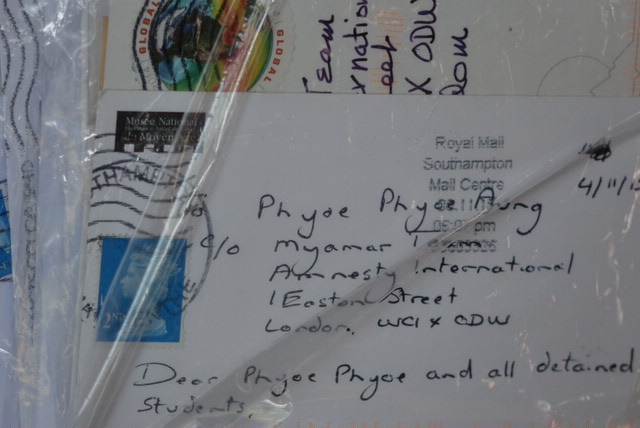 GLOBAL
GLOBAL
Team
X ODW
Musée National
Moyen
Royal Mail
Southampton
Mail Centre
pm
4/11/1
To Phyoe Phyoe Aung
c/o Myamar
Amnesty International
1 Easton Street
London, WC1X ODW
2ND
Dear Phyoe Phyoe and all detained
Students,